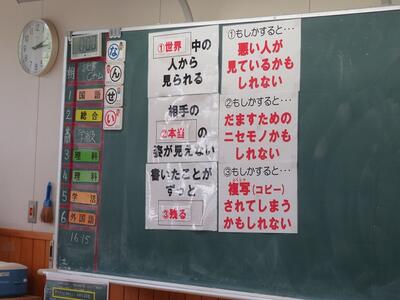 なん
せい
①世界 中の
人から
見られる
相手の
②本当 の
姿が見えない
書いたことが
ずっと
③残る
①もしかすると…
悪い人が
見ているかも
しれない
②もしかすると…
だますための
ニセモノかも
しれない
③もしかすると…
複写(コピー)
されてしまう
かもしれない
朝
1 国語
2 総合
学級
3 理科
4 理科
5 学活
6 外国語
16:15